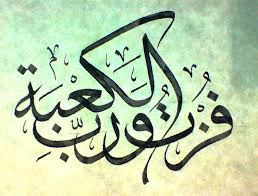 فزت ورب الكعبة